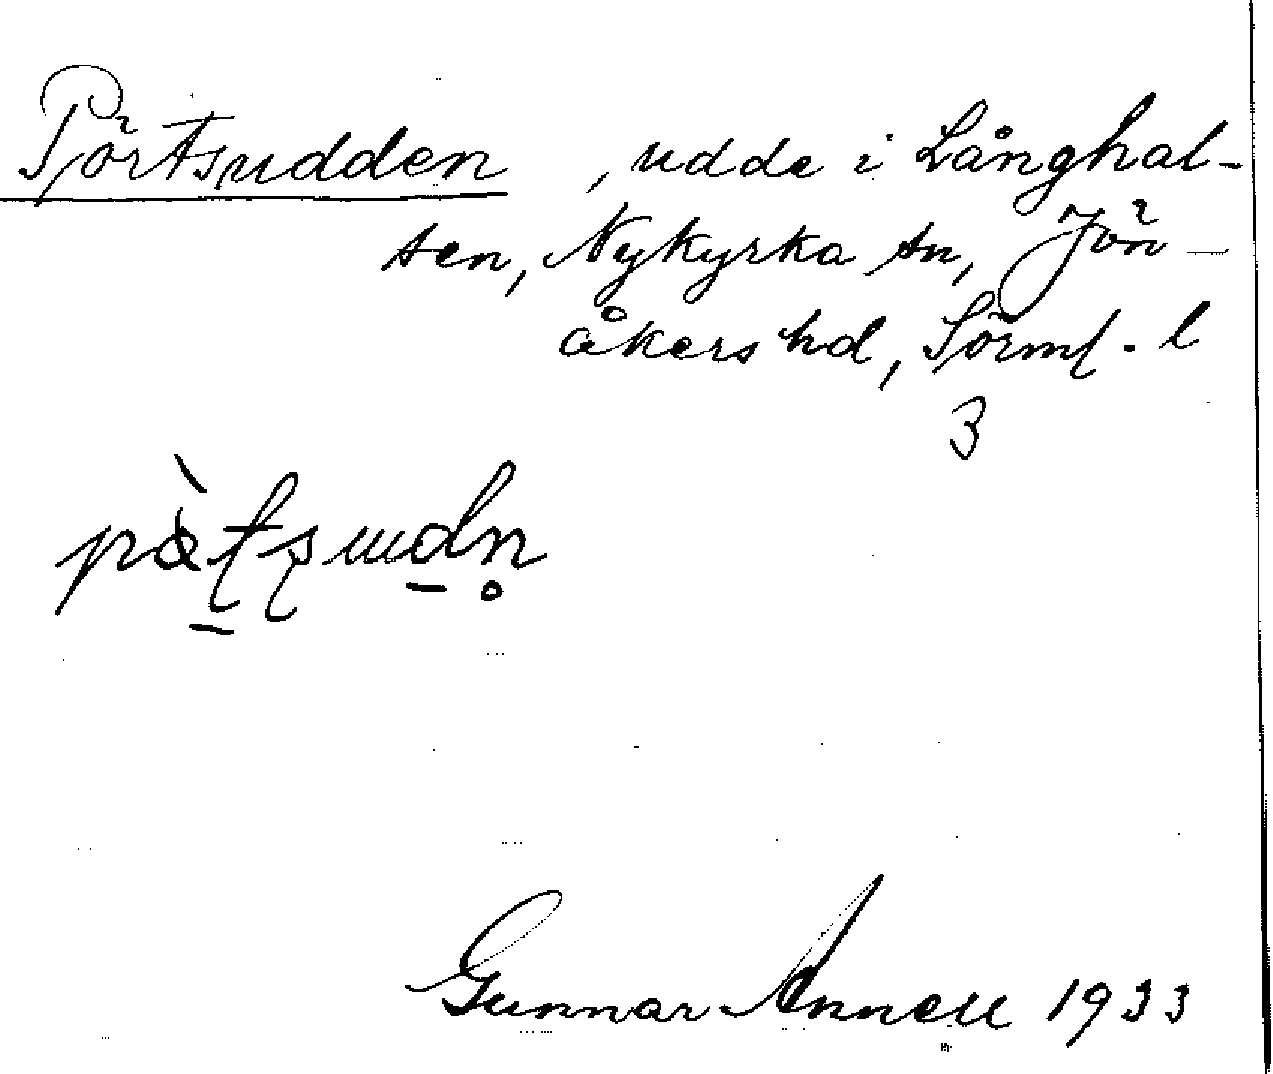 Pörtsudden, udde i Långhal-
sen, Nykyrka sn, Jön-
åkers hd, Sörml. l
3
Gunnar Annell 1933